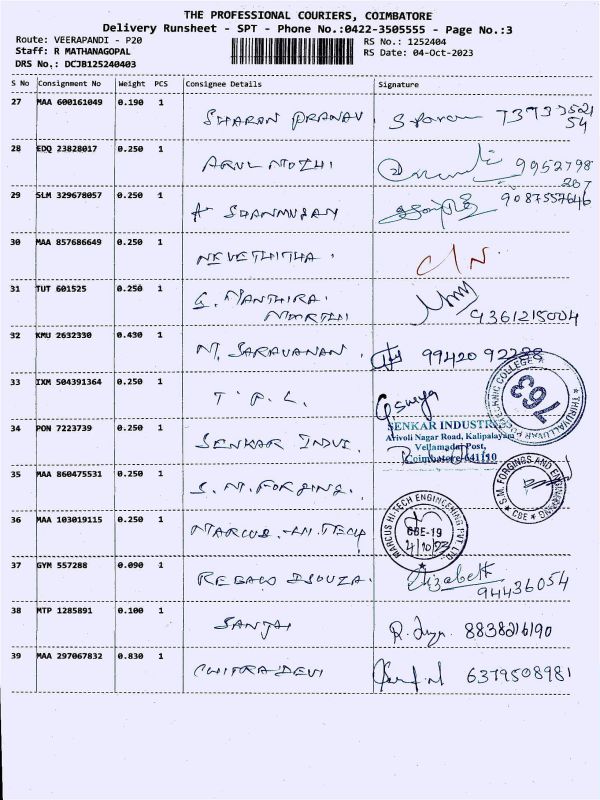 THE PROFESSIONAL COURIERS, COIMBATORE
Delivery Runsheet - SPT - Phone No.:0422-3505555 - Page No.:3
Route: VEERAPANDI - P20
RS No.: 1252404
Staff: R MATHANAGOPAL
RS Date: 04-Oct-2023
DRS No.: DCJB125240403
S No Consignment No Weight PCS Consignee Details Signature
27 MAA 600161049 0.190 1 SHARAN PRANAV
28 EDQ 23828017 0.250 1 ARUL MOZHI 9952798
267
29 SLM 329678057 0.250 1 A SHANMUGAM 9087557646
30 MAA 857686649 0.250 1 NEVETHITHA. C/N.
31 TUT 601525 0.250 1 G. MANTHIRA.
MOORTHI 9361215004
32 KMU 2632330 0.430 1 M. SARAVANAN. 99420 92288
33 IXM 504391364 0.250 1 T. P. L.
THIRUVALLUVAR POLYTECHNIC COLLEGE
763
34 PON 7223739 0.250 1 SENKAR INDUS.
SENKAR INDUSTRI
Arivoli Nagar Road, Kalipalayam
Vellamadai Post,
Coimbatore-641110
35 MAA 860475531 0.250 1 S. M. FORGING.
S.M. FORGINGS AND ENGINEERING
CBE
36 MAA 103019115 0.250 1 MARCUS. HI. TECH
MARCUS HITECH ENGINEERING PVT. LTD
CBE-19
4/10/23
37 GYM 557288 0.090 1 REGALO DSOUZA. Elizabeth
94436054
38 MTP 1285891 0.100 1 SANJAI 8838216190
39 MAA 297067832 0.830 1 CHITRADEVI 6379508981